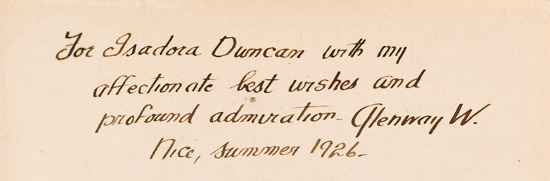 For Isadora Duncan with my
affectionate best wishes and
profound admiration- Glenway W.
Nice, summer 1926-